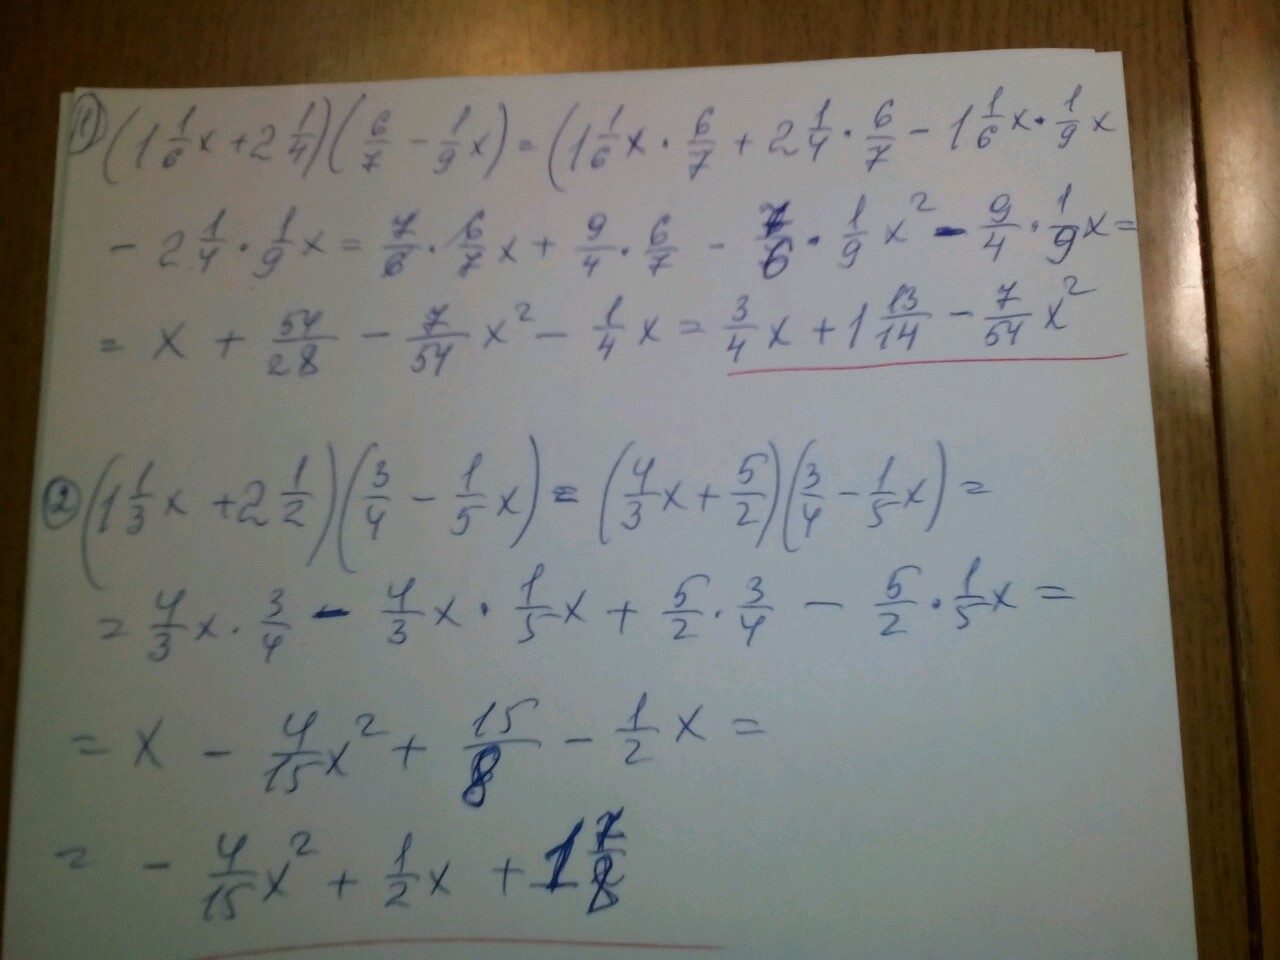 ① (1 1/6 x + 2 1/4)(6/7 - 1/9 x) = (1 1/6 x · 6/7 + 2 1/4 · 6/7 - 1 1/6 x · 1/9 x
- 2 1/4 · 1/9 x = 7/6 · 6/7 x + 9/4 · 6/7 - 7/6 · 1/9 x² - 9/4 · 1/9 x =
= x + 54/28 - 7/54 x² - 1/4 x = 3/4 x + 1 13/14 - 7/54 x²
② (1 1/3 x + 2 1/2)(3/4 - 1/5 x) = (4/3 x + 5/2)(3/4 - 1/5 x) =
= 4/3 x · 3/4 - 4/3 x · 1/5 x + 5/2 · 3/4 - 5/2 · 1/5 x =
= x - 4/15 x² + 15/8 - 1/2 x =
= - 4/15 x² + 1/2 x + 1 7/8